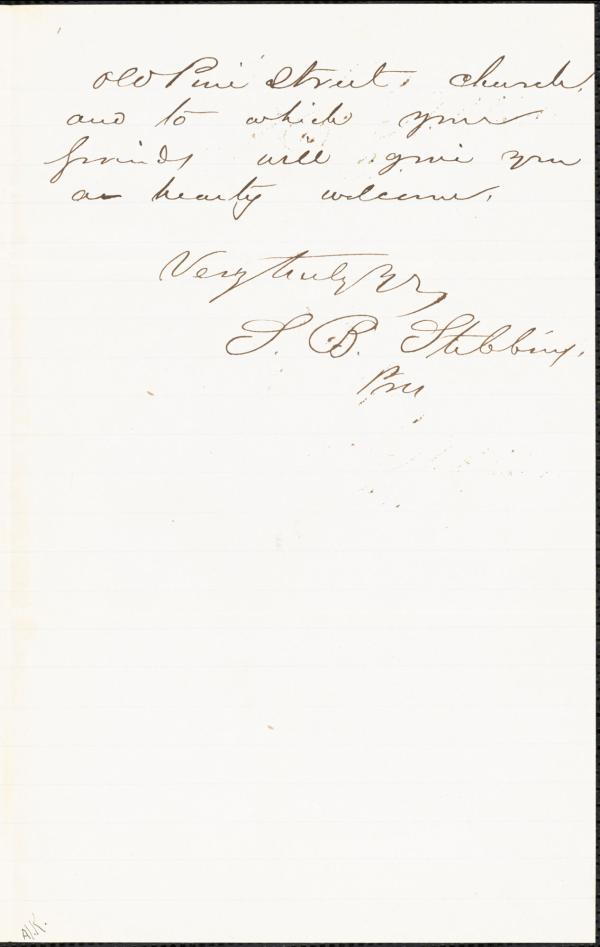 old Pine Street church,
and to which your
friends will give you
a hearty welcome.
Very truly yrs,
S. B. Stebbins,
Pres
A.K.